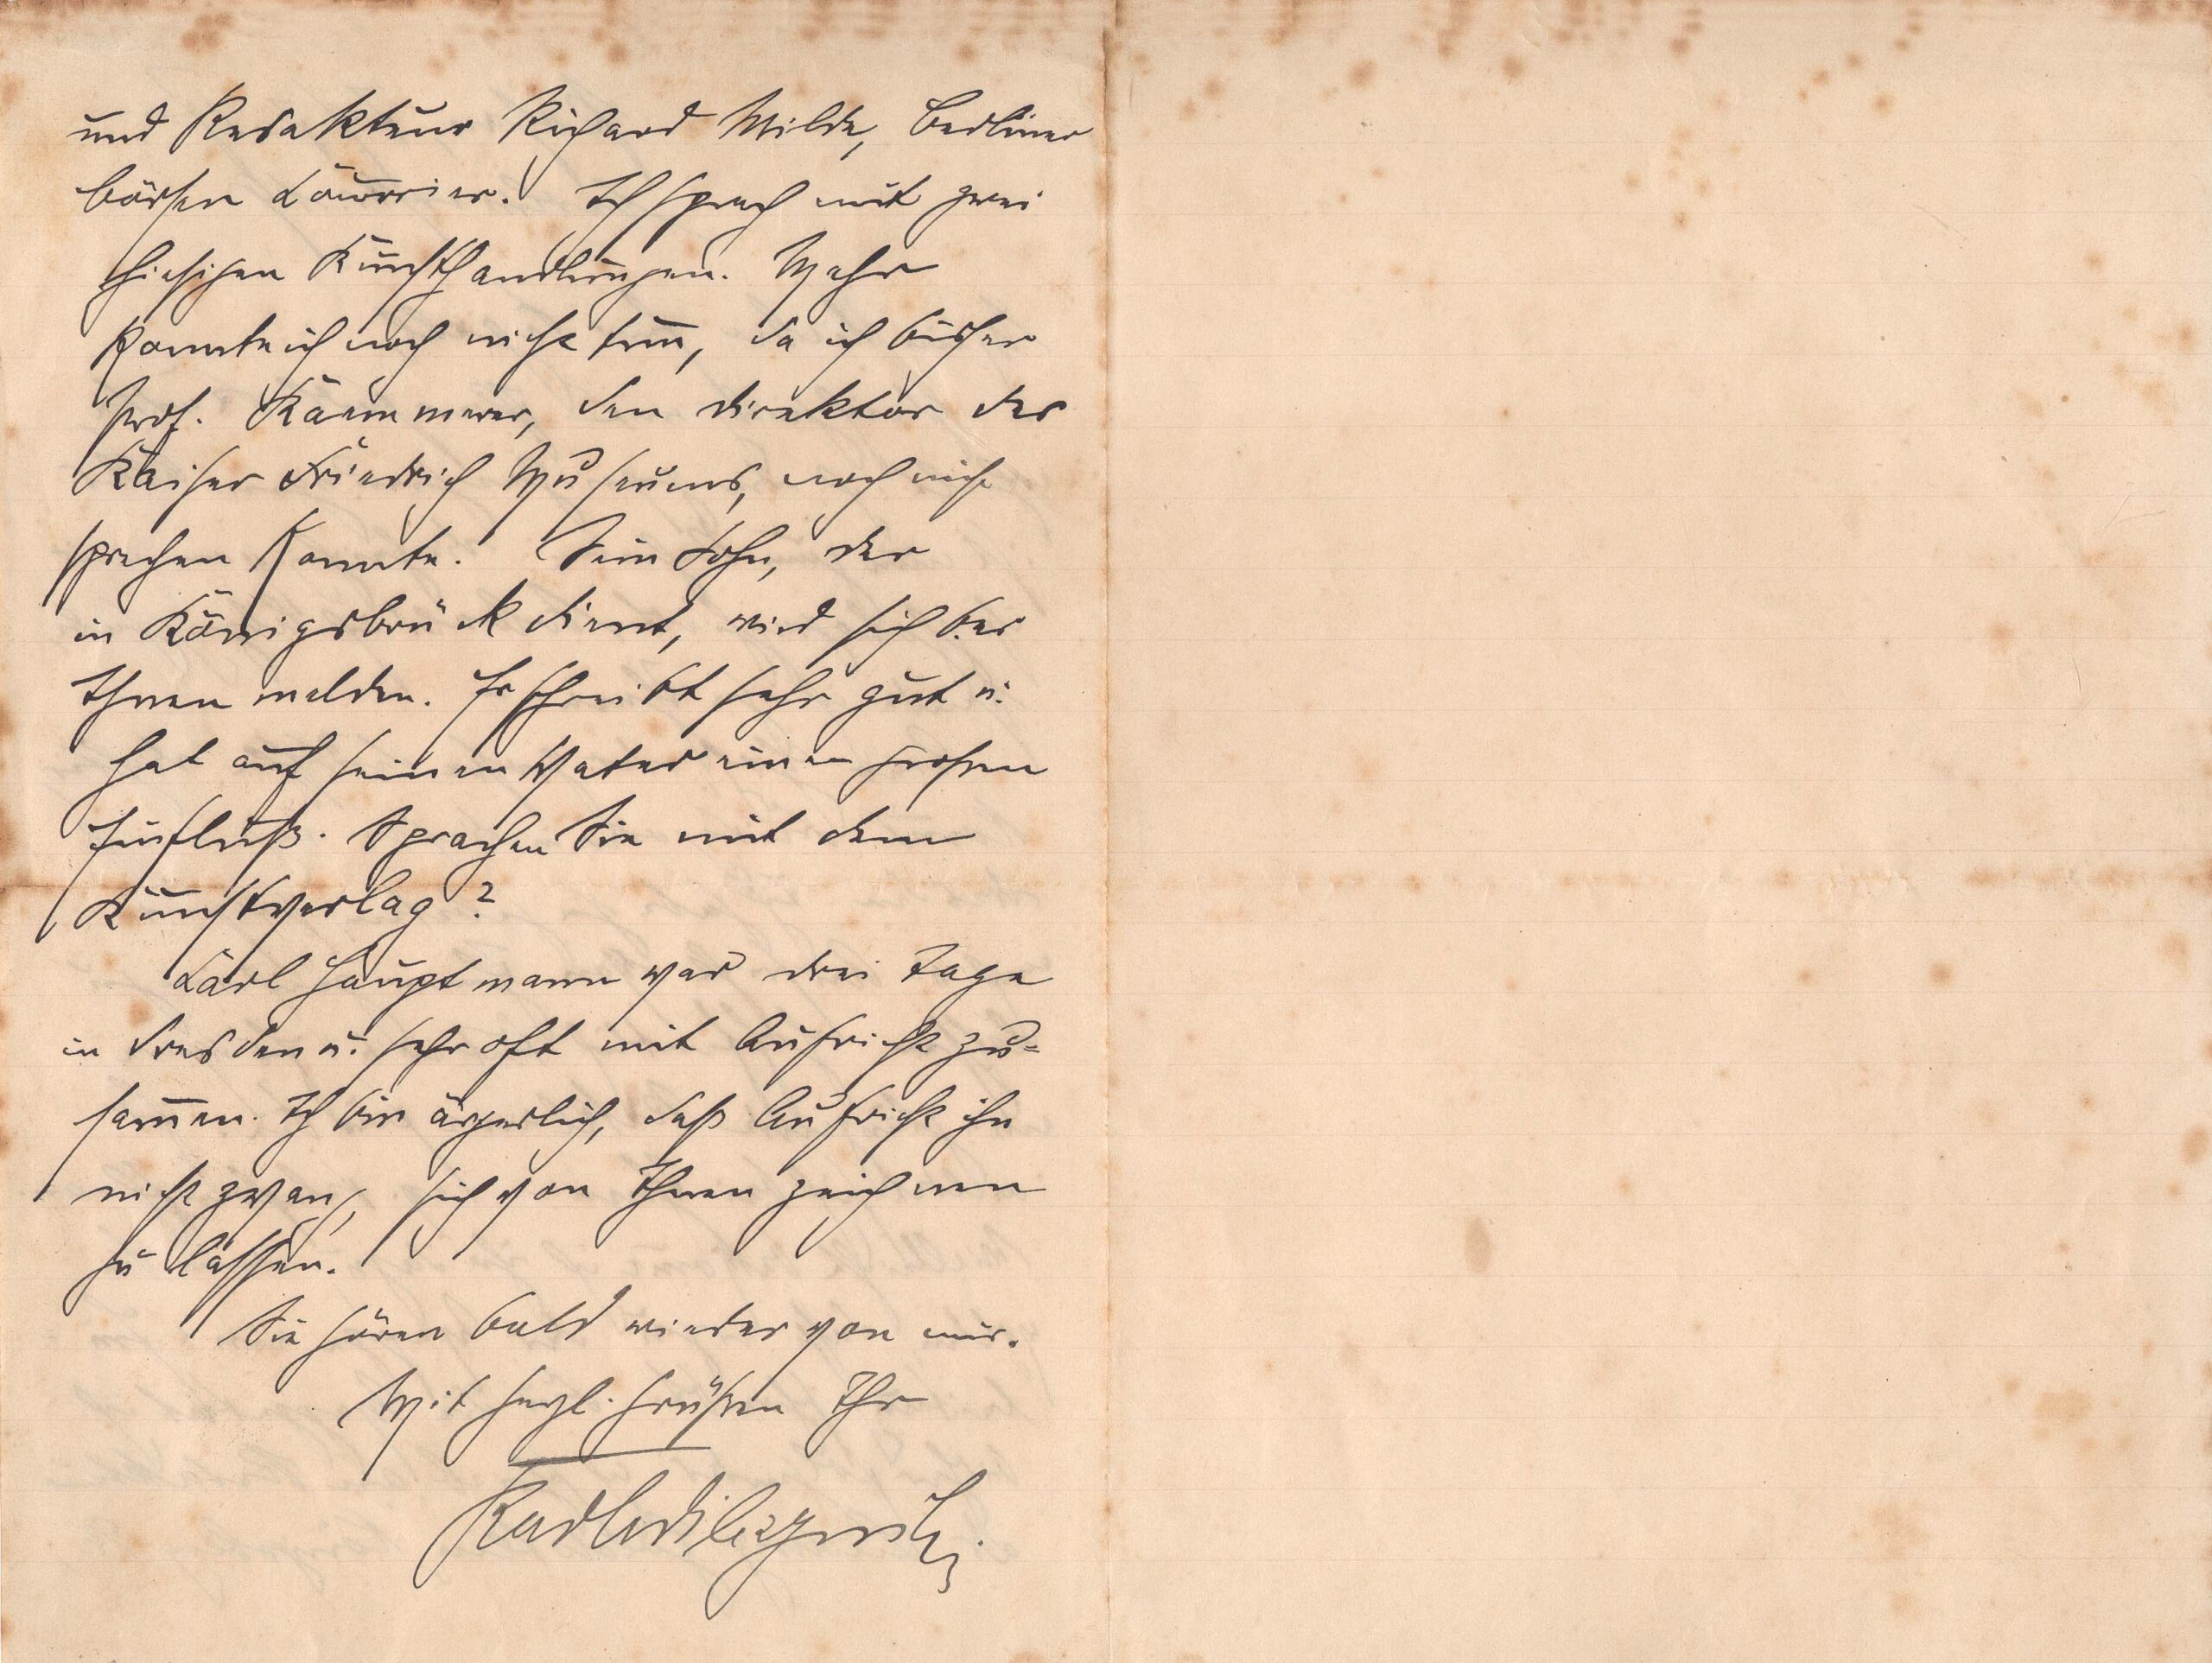 und Redakteur Richard Wilde, Berliner
Börsen Courrier. Ich sprach mit zwei
hiesigen Kunsthandlungen. Mehr
konnte ich noch nicht tun, da ich bisher
Prof. Kaemmerer, den Direktor des
Kaiser Friedrich Museums, noch nicht
sprechen konnte. Sein Sohn, der
in Königsbrück dient, wird sich bei
Ihnen melden. Er schreibt sehr gut u.
hat auf seinen Vater einen großen
Einfluß. Sprachen Sie mit dem
Kunstverlag?
Carl Hauptmann war drei Tage
in Dresden u. sehr oft mit Aufricht zu=
sammen. Ich bin ärgerlich, daß Aufricht ihn
nicht zwang, sich von Ihnen zeichnen
zu lassen.
Sie hören bald wieder von mir.
Mit herzl. Grüßen Ihr